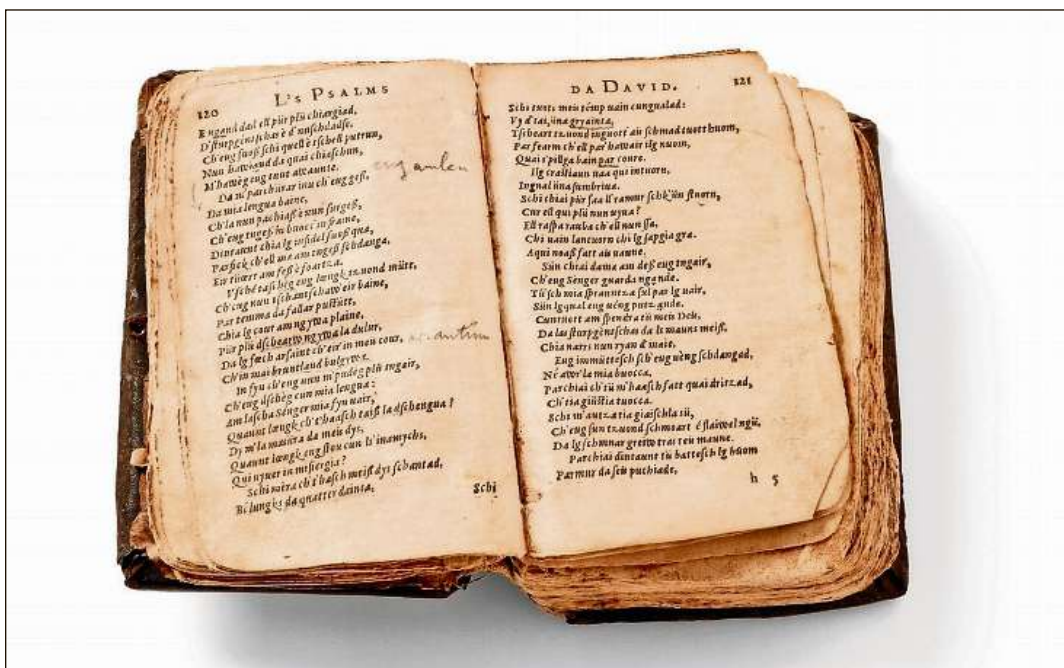 120
L's PSALMS
Engand dad ell pür plü chiargiad,
D'sturpgintschas è d'unschdadse.
Ch'eug suoß schi quell è tschell puttrun,
Nun hawiand da quai chiaschun,
M'hawèg eug tuut auaunte.
Da m' parchürar inu ch'eug geß,
Da mia lengua baine,
Ch'la nun pachiaß è nun surgeß,
Ch'eug tngeß in bucc' in fraine,
Dintaunt chia lg infidel fueß qua,
Parsick ch'ell ma am tngeß schdanga,
Eir tüert am feß è foartza.
V'schè taschèg eug lœngk tzuond mütt,
Ch'eug nun tschantschaw' eir baine,
Par temma da fallar pustütt,
Chia lg cour am ngywa plaine,
Pür plü dscheart ngywa la dulur,
Da lg fœch arsaint ch'eir in meu cour,
Ch'in mai bruntland bulgywa.
In fyn ch'eug nun m'pudeg plü tngair,
Ch'eug dschèg cun mia lengua:
Am lascha Sènger mia fyn uair,
Quaunt lœngk ch't'haasch taiß la dschengua?
Dy m'la maniera da meis dys,
Quaunt lœngk eug stou cun ls' inamychs,
Qui vyuer in misergia?
Schi mèra ch't'hasch meiß dys schantad,
Bè lungks da quatter dainta,
Schi
DA DAVID.
121
Schi tuot meis tèmp uain cungualad:
Vy d'tai, üna gryainta,
T'scheart tzuond inguott' ais schmad tuott huom,
Par fearm ch'ell par' hawair ilg nuom,
Quai s'pillga bain par coure.
Ilg crastiaun uaa qui intuorn,
Ingual üna sumbriua.
Schi chiai pür faa'll ramur schk'ün stuorn,
Cur ell qui plü nun uyua?
Ell raspa rauba ch'ell nun ssa,
Chi uain lantuorn chi lg sapgia gra.
Aqui noaß fatt ais uaune.
Sün chiai dama am deß eug tngair,
Ch'eug Sènger guarda ngonde.
Tü isch mia sprauntza sul par lg uair,
Sün lg qual eug uèng putzande.
Cuntuott am spendra tü meis Deis,
Da las sturpgentschas da ls mauns meiß,
Chia narrs nun ryan d'maite.
Eug immüttesch sch'eug uèng schdangad,
Nè awr' la mia buocca,
Parchiai ch'tü m'haasch fatt quai dritzad,
Ch'tia giüstia tuocca.
Schi m'autza tia giaischla sü,
Ch'eug sun tzuond schmoart è flaiwel ngü,
Da lg schmnar greiw trat teis maune.
Parchiai dintaunt tü battesch lg huom
Parmur da seis puchiade,
h 5